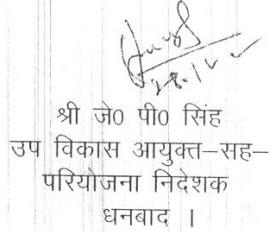 श्री जे0 पी0 सिंह
उप विकास आयुक्त–सह–
परियोजना निदेशक
धनबाद ।